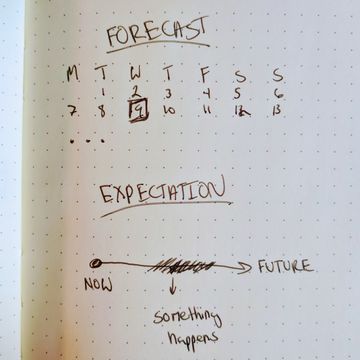 FORECAST
M T W T F S S
1 2 3 4 5 6
7 8 9 10 11 12 13
...
EXPECTATION
FUTURE
NOW
something
happens